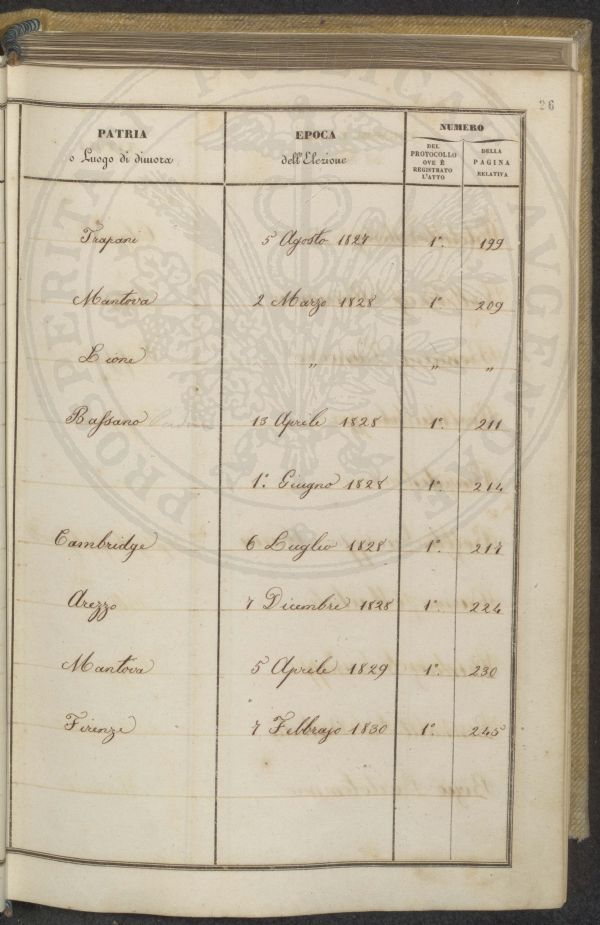 26
PATRIA
o Luogo di dimora
EPOCA
dell'Elezione
NUMERO
DEL
PROTOCOLLO
OVE È
REGISTRATO
L'ATTO
DELLA
PAGINA
RELATIVA
Trapani 5 Agosto 1827 1°. 199
Mantova 2 Marzo 1828 1° 209
Lione " " "
Bassano 13 Aprile 1828 1°. 211
1°. Giugno 1828 1°. 214
Cambridge 6 Luglio 1828 1°. 217
Arezzo 7 Dicembre 1828 1°. 224
Mantova 5 Aprile 1829 1°. 230
Firenze 7 Febbrajo 1830 1° 245
PROSPERITATI PUBLICAE AUGENDAE